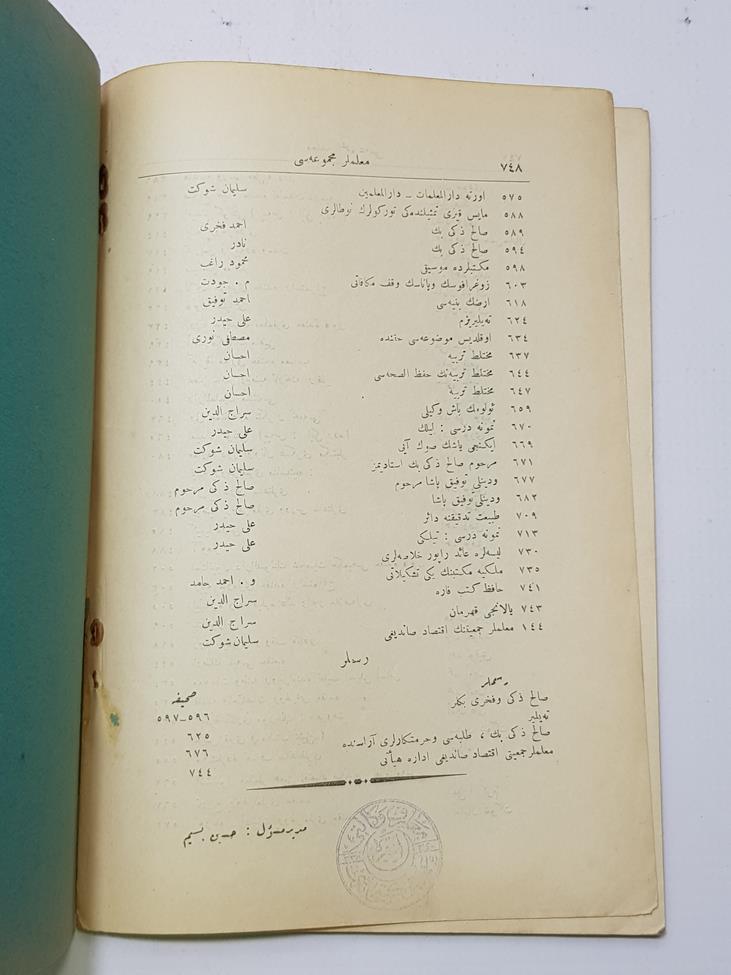 ٧٤٨ معلملر مجموعه‌سی
٥٧٥ اورته دارالمعلمات - دارالمعلمين سليمان شوكت
٥٨٨ مايس قيزی تمثيلنده‌كی توركولرك نوطالری
٥٨٩ صالح ذكی بك احمد فخری
٥٩٤ صالح ذكی بك نادر
٥٩٨ مكتبلرده موسيقی محمود راغب
٦٠٣ زوغرافوسك وپاناسك وقف مكافاتی م . جودت
٦١٨ ارضك بنيه‌سی احمد توفيق
٦٢٤ ته‌يليريزم علی حيدر
٦٣٤ اوقليديس موضوعه‌سی حقنده مصطفی نوری
٦٣٧ مختلط تربيه احسان
٦٤٤ مختلط تربيه‌نك حفظ الصحه‌سی احسان
٦٤٧ مختلط تربيه احسان
٦٥٩ ئولومك باش وكيلی سراج الدين
٦٧٠ نمونه درسی : ليلك علی حيدر
٦٦٩ ايكنجی ياشك صوك آتی سليمان شوكت
٦٧١ مرحوم صالح ذكی بك استاديمز سليمان شوكت
٦٧٧ ودينلی توفيق پاشا مرحوم صالح ذكی مرحوم
٦٨٢ ودينلی توفيق پاشا صالح ذكی مرحوم
٧٠٩ طبيعت تدقيقنه دائر علی حيدر
٧١٣ نمونه درسی : تيلكی علی حيدر
٧٣٠ ليسه‌لره عائد راپور خلاصه‌لری
٧٣٥ ملكيه مكتبنك يكی تشكيلاتی و . احمد حامد
٧٤١ حافظ كتب قاره سراج الدين
٧٤٣ يالانجی قهرمان سراج الدين
١٤٤ معلملر جمعيتنك اقتصاد صانديغی سليمان شوكت
رسملر
رسملر صحيفه
صالح ذكی وفخری بكلر ٥٩٦-٥٩٧
ته‌يلير ٦٢٥
صالح ذكی بك ، طلبه‌سی وحرمتكارلری آراسنده ٦٧٦
معلملر جمعيتی اقتصاد صانديغی اداره هيأتی ٧٤٤
مدير مسؤل : حسين بسيم